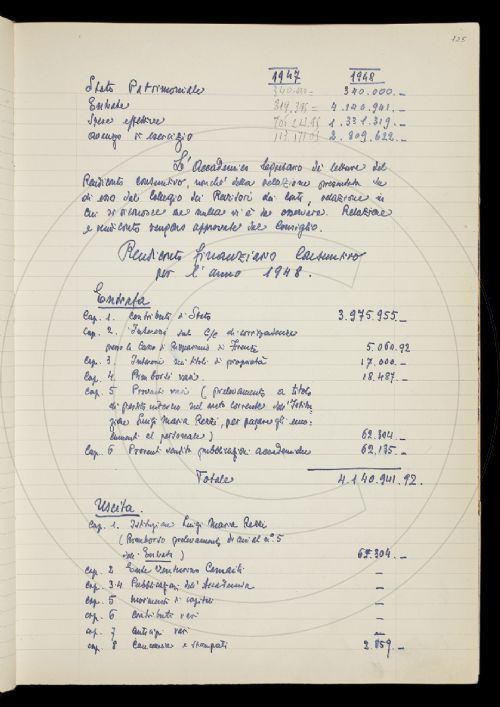 125
1947 1948
Stato Patrimoniale 340.000= 340.000.-
Entrate 319.395= 4.140.941.-
Spese effettive 1.331.319.-
avanzo di esercizio 2.809.622.-
L'Accademico Segretario dà lettura del
Rendiconto consuntivo, nonché della relazione presentata su
di esso dal Collegio dei Revisori dei conti, relazione in
cui si riconosce che nulla vi è da osservare. Relazione
e rendiconto vengono approvate dal Consiglio.
Rendiconto finanziario Consuntivo
per l'anno 1948.
Entrata
Cap. 1. Contributi di Stato 3.975.955.-
Cap. 2. Interessi sul c/c di corrispondenza
presso la Cassa di Risparmio di Firenze 5.060.92
Cap. 3. Interessi dei titoli di proprietà 17.000.-
Cap. 4. Rimborsi vari. 18.487.-
Cap. 5 Proventi vari (prelevamento a titolo
di prestito interno sul conto corrente dell'Istitu-
zione Luigi Maria Rezzi, per pagare gli emo-
lumenti al personale) 62.304.-
Cap. 6 Proventi vendita pubblicazioni accademiche 62.135.-
Totale 4.140.941.92.
Uscita.
Cap. 1. Istituzione Luigi Maria Rezzi
(Rimborso prelevamento di cui al n° 5
dell'Entrata) 62.304.-
Cap. 2 Ente Venturino Camaiti -
Cap. 3-4 Pubblicazioni dell'Accademia -
Cap. 5 movimenti di capitali -
Cap. 6 contributi vari -
Cap. 7 anticipi vari -
Cap. 8 Cancelleria e stampati 2.859.-